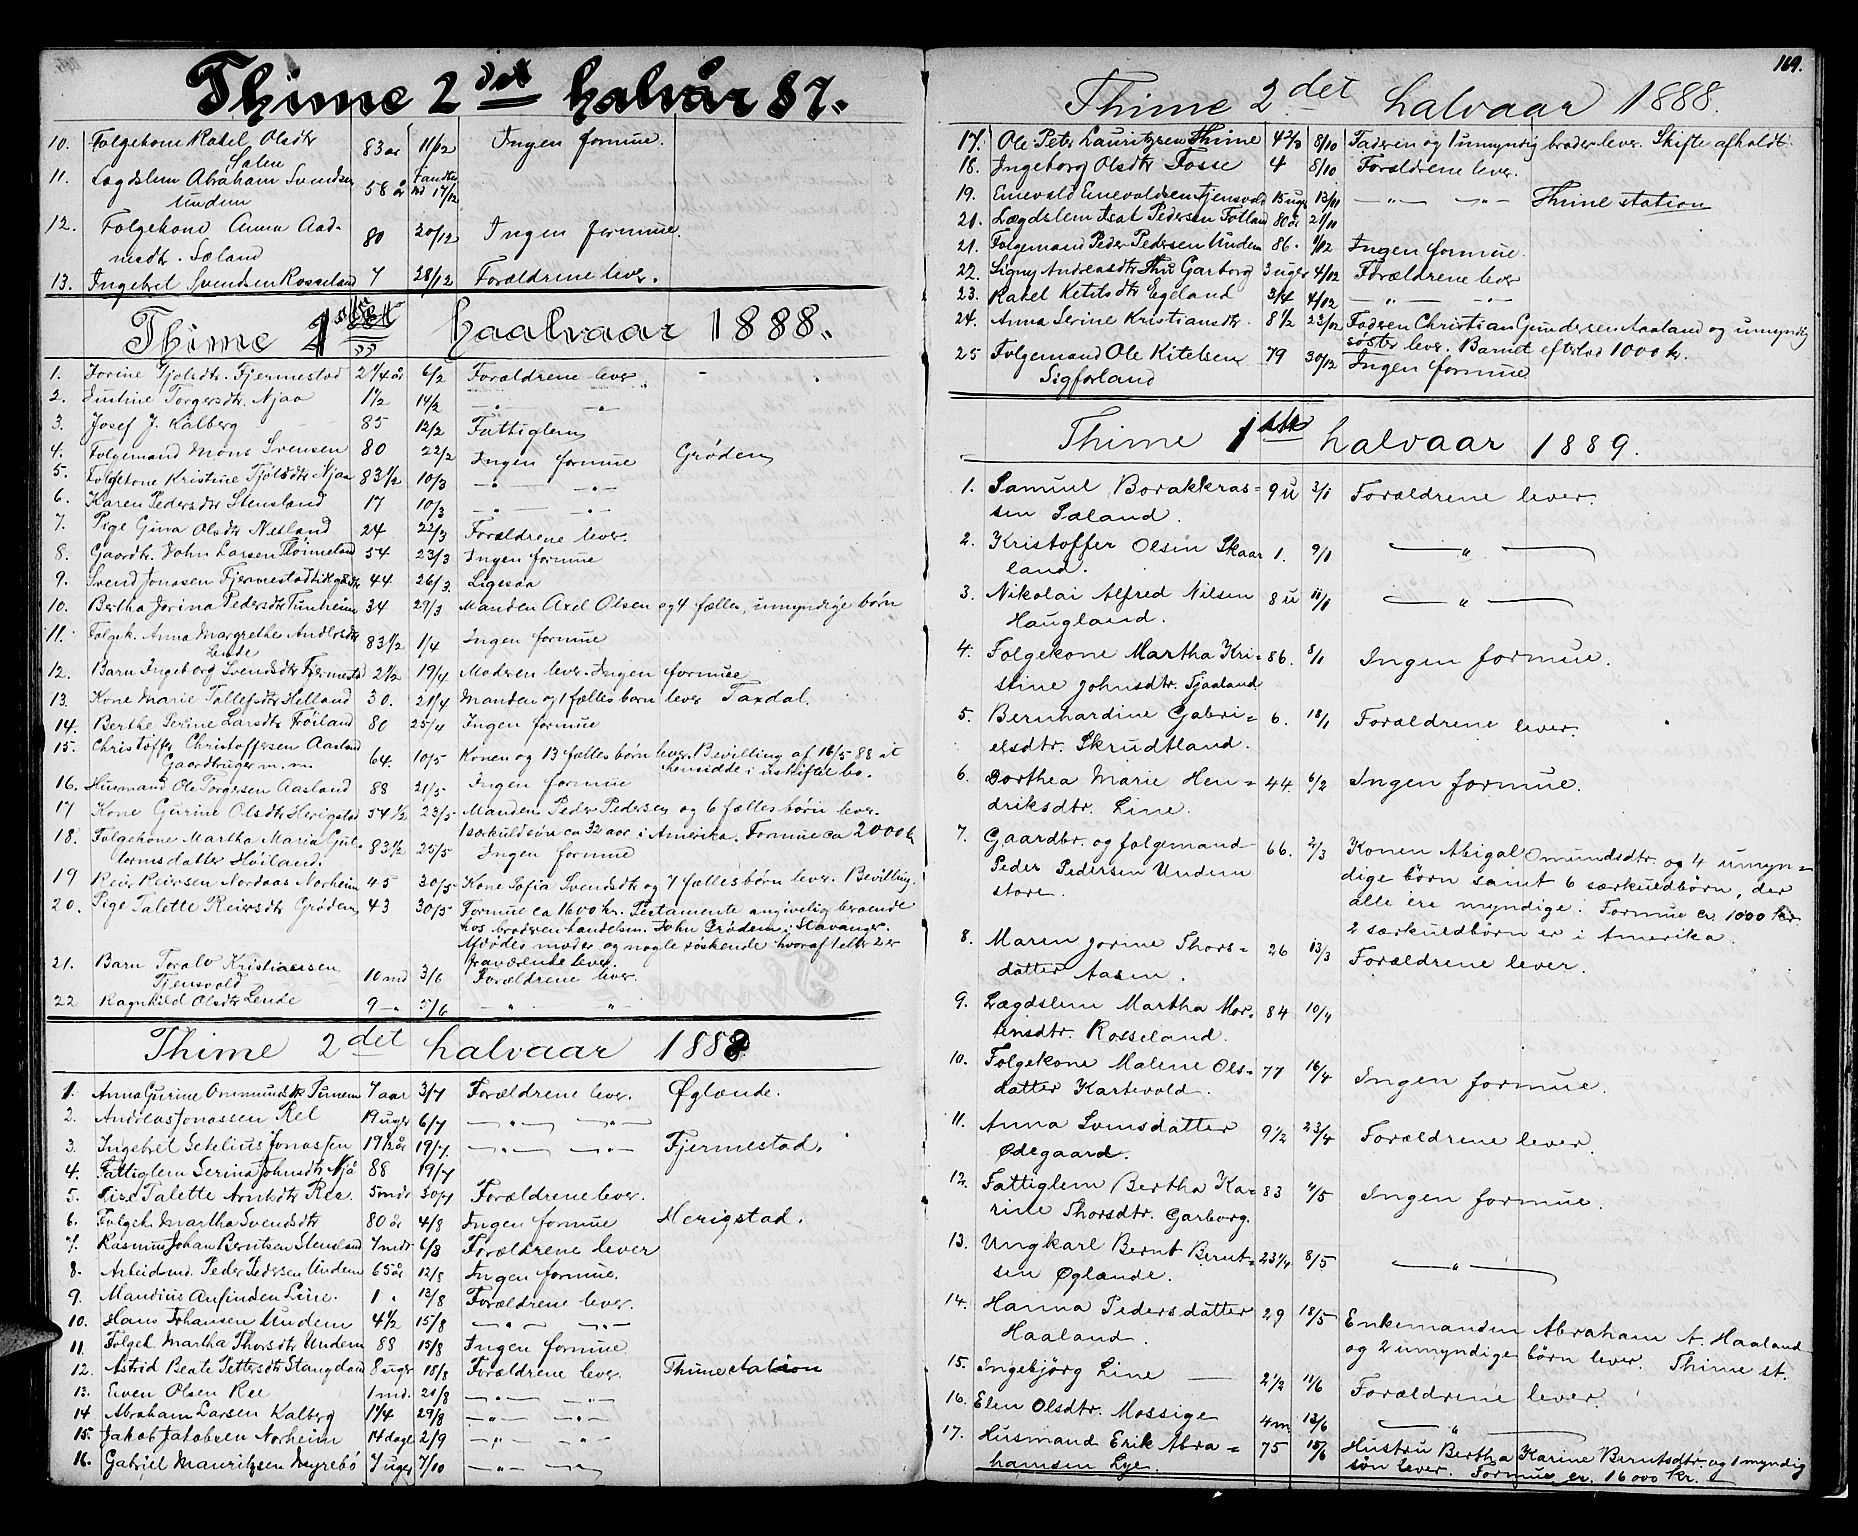 Thime 2det halvår 87.
10. Folgekone Rakel Olsdtr 83 år 11/12 Ingen formue.
Salen
11. Lægdslem Abraham Svendsen 58 år 17/12
Undem
12. Folgekone Anna Aad- 80 20/12 Ingen formue.
nsdtr. Sæland
13. Ingebret Svendsen Rosseland 7 28/12 Forældrene lever.
Thime 1ste haalvaar 1888.
1. Jorine Fjermestad 2 1/4 år 6/2 Forældrene lever
2. Justine Torgersdtr. Njaa 1 1/2 14/2 — „ — „ —
3. Josef J. Kalberg 85 12/2 Fattiglem
4. Folgemand Mons Svensen 80 22/2 Ingen formue Grøden
5. Folgekone Kristine Njaa 83 1/2 10/3 — „ — „ —
6. Karen Pedersdtr Stensland 17 10/3 — „ — „ —
7. Pige Gina Olsdtr Netland 24 22/3 Forældrene lever.
8. Gaardbr. John Larsen 54 23/3 Ingen formue
9. Svend Jonassen Fjermestad 44 26/3 Ligesaa
10. Bertha Jorina Pedersdtr Tunheim 34 29/3 Manden Axel Olsen og 4 fælles, umyndige børn
11. Folgek. Anna Margrethe 83 1/2 1/4 Ingen formue
Lende
12. Barn Ingeborg Svendsdtr Fjermestad 2 1/2 19/4 Moderen lever. Ingen formue
13. Kone Marie Tollefsdtr Helland 30. 21/4 Manden og 1 fælles barn lever Taxdal.
14. Berthe Serine Larsdtr Høiland 80 25/4 Ingen formue
15. Christoffer Christoffersen Aasland 64. 10/5 Konen og 13 fælles børn lever. Bevilling af 16/5 88 at
Gaardbruger m. m. hensidde i uskiftet bo.
16. Husmand Ole Torgersen Aasland 88 21/5 Ingen formue
17 Kone Gurine Olsdtr Herigstad 54 1/2 23/5 Manden Peder Pedersen og 6 fælles børn lever.
1 særkuldsøn ca 32 aar i Amerika. Formue ca 2000 kr
18. Folgekone Martha Maria Gul- 83 1/2 25/5 Ingen formue
lormsdatter Höiland.
19 Reier Reiersen Nordaas Norheim 45 30/5 Kone Sofia Svendsdtr og 7 fælles børn lever. Bevilling.
20. Pige Talette Reiersdtr Grödem 43 30/5 Formue ca 1600 kr. Testamente angivelig beroende
hos broderen handelsm. John Grødem i Stavanger.
Afdødes moder og nogle söskende hvoraf 1 eller 2 er
fraværende lever.
21. Barn Toralv Kristiansen 10 md 3/6 Forældrene lever.
Tjensvold
22 Ragnhild Olsdtr Lende 9 — „ 5/6 — „ „
Thime 2det halvaar 1888
1. Anna Gurine Ommundsdtr 7 aar 3/7 Forældrene lever. Øglænde.
2. Andreas Jonassen Rel 19 uger 6/7 — „ — „ —
3. Ingebret Setelius Jonassen 19 1/2 år 19/7 — „ — „ — Fjermestad.
4. Fattiglem Serina Johnsdtr Njå 88 19/7
5. Talette Arntsdtr Ree 5 mdr 30/7 Forældrene lever.
6. Folgek. Martha Svendsdtr 80 år 4/8 Ingen formue Herigstad.
7. Rasmus Johan Berntsen Stensland 7 mdr 6/8 Forældrene lever
8. Arbeidmd. Peder Pedersen Undem 65 år 12/8 Ingen formue.
9. Mandius Anfinden Line. 1 „ 13/8 Forældrene lever.
10. Hans Johansen Undem 4 1/2 15/8 — „ — „ —
11. Folgek. Martha Thorsdtr Undem 88 15/8 Ingen formue
12. Astrid Beate Stangeland 8 uger 18/8 Forældrene lever. Thime station
13. Even Olsen Ree 1 md. 20/8 — „ — „ —
14 Abraham Larsen Kalberg 1 1/4 29/8 — „ — „ —
15. Jakob Jakobsen Norheim 14 dage 2/9 — „ — „ —
16. Gabriel Mauritzsen Myrebø 7 uger 7/10 — „ — „ —
169.
Thime 2det halvaar 1888.
17. Ole Peter Lauritzsen Thime 4 2/3 8/10 Faderen og 1 umyndig broder lever. Skifte afholdt.
18. Ingeborg Olsdtr Fosse 4 8/10 Forældrene lever.
19. Enevald Enevaldsen Tjensvold 15 uger 13/11 — „ — „ — Thime station
20. Lægdslem Isak Pedersen Fotland 80 år 21/11
21. Folgemand Peder Pedersen Undem 86. 1/12 Ingen formue.
22. Signy Andreasdtr Thu Garborg 3 uger 4/12 Forældrene lever
23. Rakel Ketilsdtr Egeland 3/4 4/12 — „ — „ —
24. Anna Serine Kristiansdtr. 8 1/2 23/12 Faderen Christian Gundersen Aasland og umyndig
søster lever. Barnet efterlod 1000 kr.
25 Folgemand Ole Kitelsen 79 30/12 Ingen formue
Sigforland
Thime 1ste halvaar 1889.
1. Samuel Borakkras= 9 u 3/1 Forældrene lever.
sen Sæland.
2. Kristoffer Olsen Skaar 1. 9/1 — „ —
land.
3. Nikolai Alfred Nilsen 8 u 11/1 — „ —
Haugland.
4. Folgekone Martha Kri= 86. 8/1 Ingen formue.
stine Johnsdtr. Tjaaland
5. Bernhardine Gabri= 6. 18/1 Forældrene lever.
elsdtr. Skrudtland.
6. Dorthea Marie Hen= 44 6/2 Ingen formue.
driksdtr. Line.
7. Gaardbr. og folgemand 66. 2/3 Konen Abigal Omundsdtr. og 4 umyn=
Peder Pedersen Undem dige børn samt 6 særkuldbørn, der
store. alle ere myndige. Formue ca 1000 kr.
2 særkuldbørn er i Amerika.
8. Maren Jorine Thors= 26 13/3 Forældrene lever.
datter Aasen.
9. Lægdslem Martha Mor= 84 10/4
tensdtr. Rosseland.
10. Folgekone Malene Ols= 77 16/4 Ingen formue.
datter Kartevold.
11. Anna Svensdatter 9 1/2 23/4 Forældrene lever.
Ødegaard.
12. Fattiglem Bertha Ka= 83 4/5 Ingen formue.
rine Thorsdtr. Garborg.
13. Ungkarl Bernt Bernt= 23 1/4 8/5 — „ —
sen Øglænde.
14. Hanna Pedersdatter 29 18/5 Enkemanden Abraham A. Haaland
Haaland. og 2 umyndige børn lever. Thime st.
15. Ingebjörg Line — 2 1/2 11/6 Forældrene lever.
16. Elen Olsdtr. Mossige 4 m 13/6 — „ —
17. Husmand Erik Abra= 75 15/6 Hustru Bertha Karine Berntsdtr. og 1 myndig
hamsen Lye. søn lever. Formue er. 16000 kr.